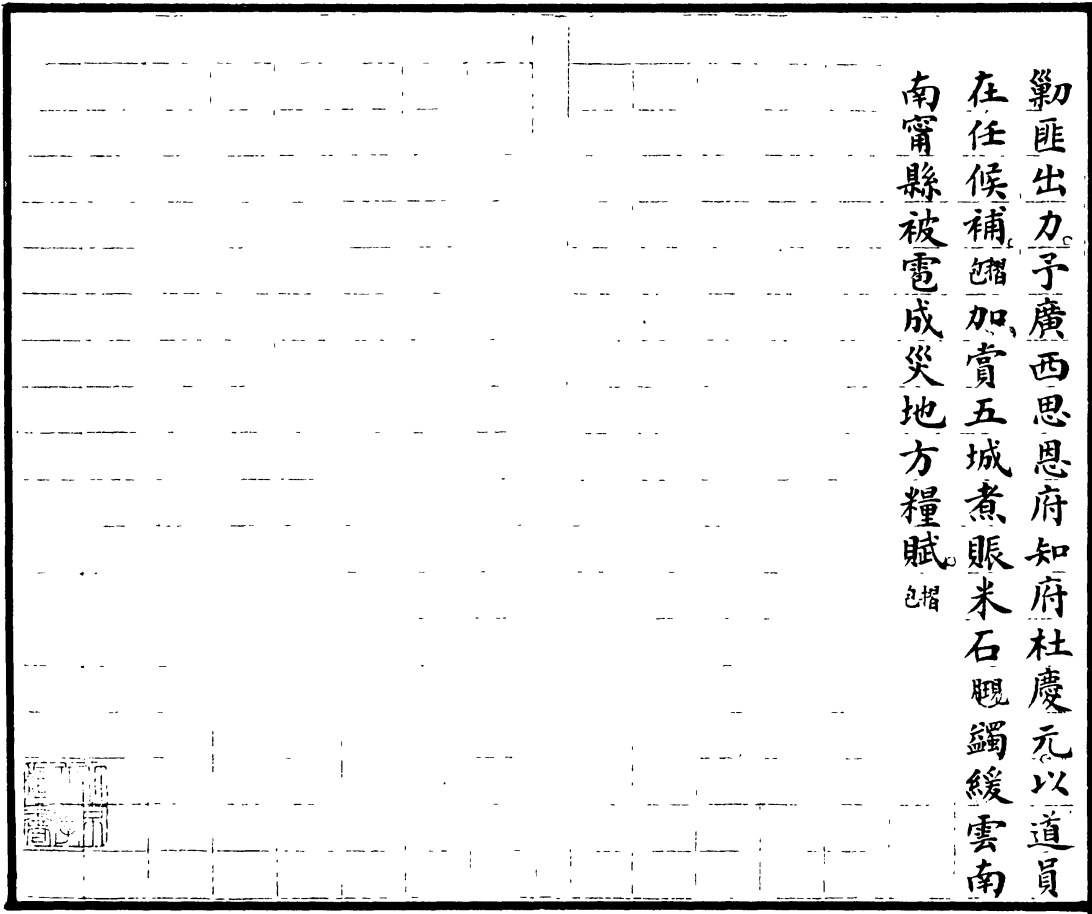 勦匪出力。予廣西思恩府知府杜慶元。以道員
在任候補。包摺加、賞五城煮賑米石現蠲緩雲南
南甯縣被雹成災地方糧賦。包摺